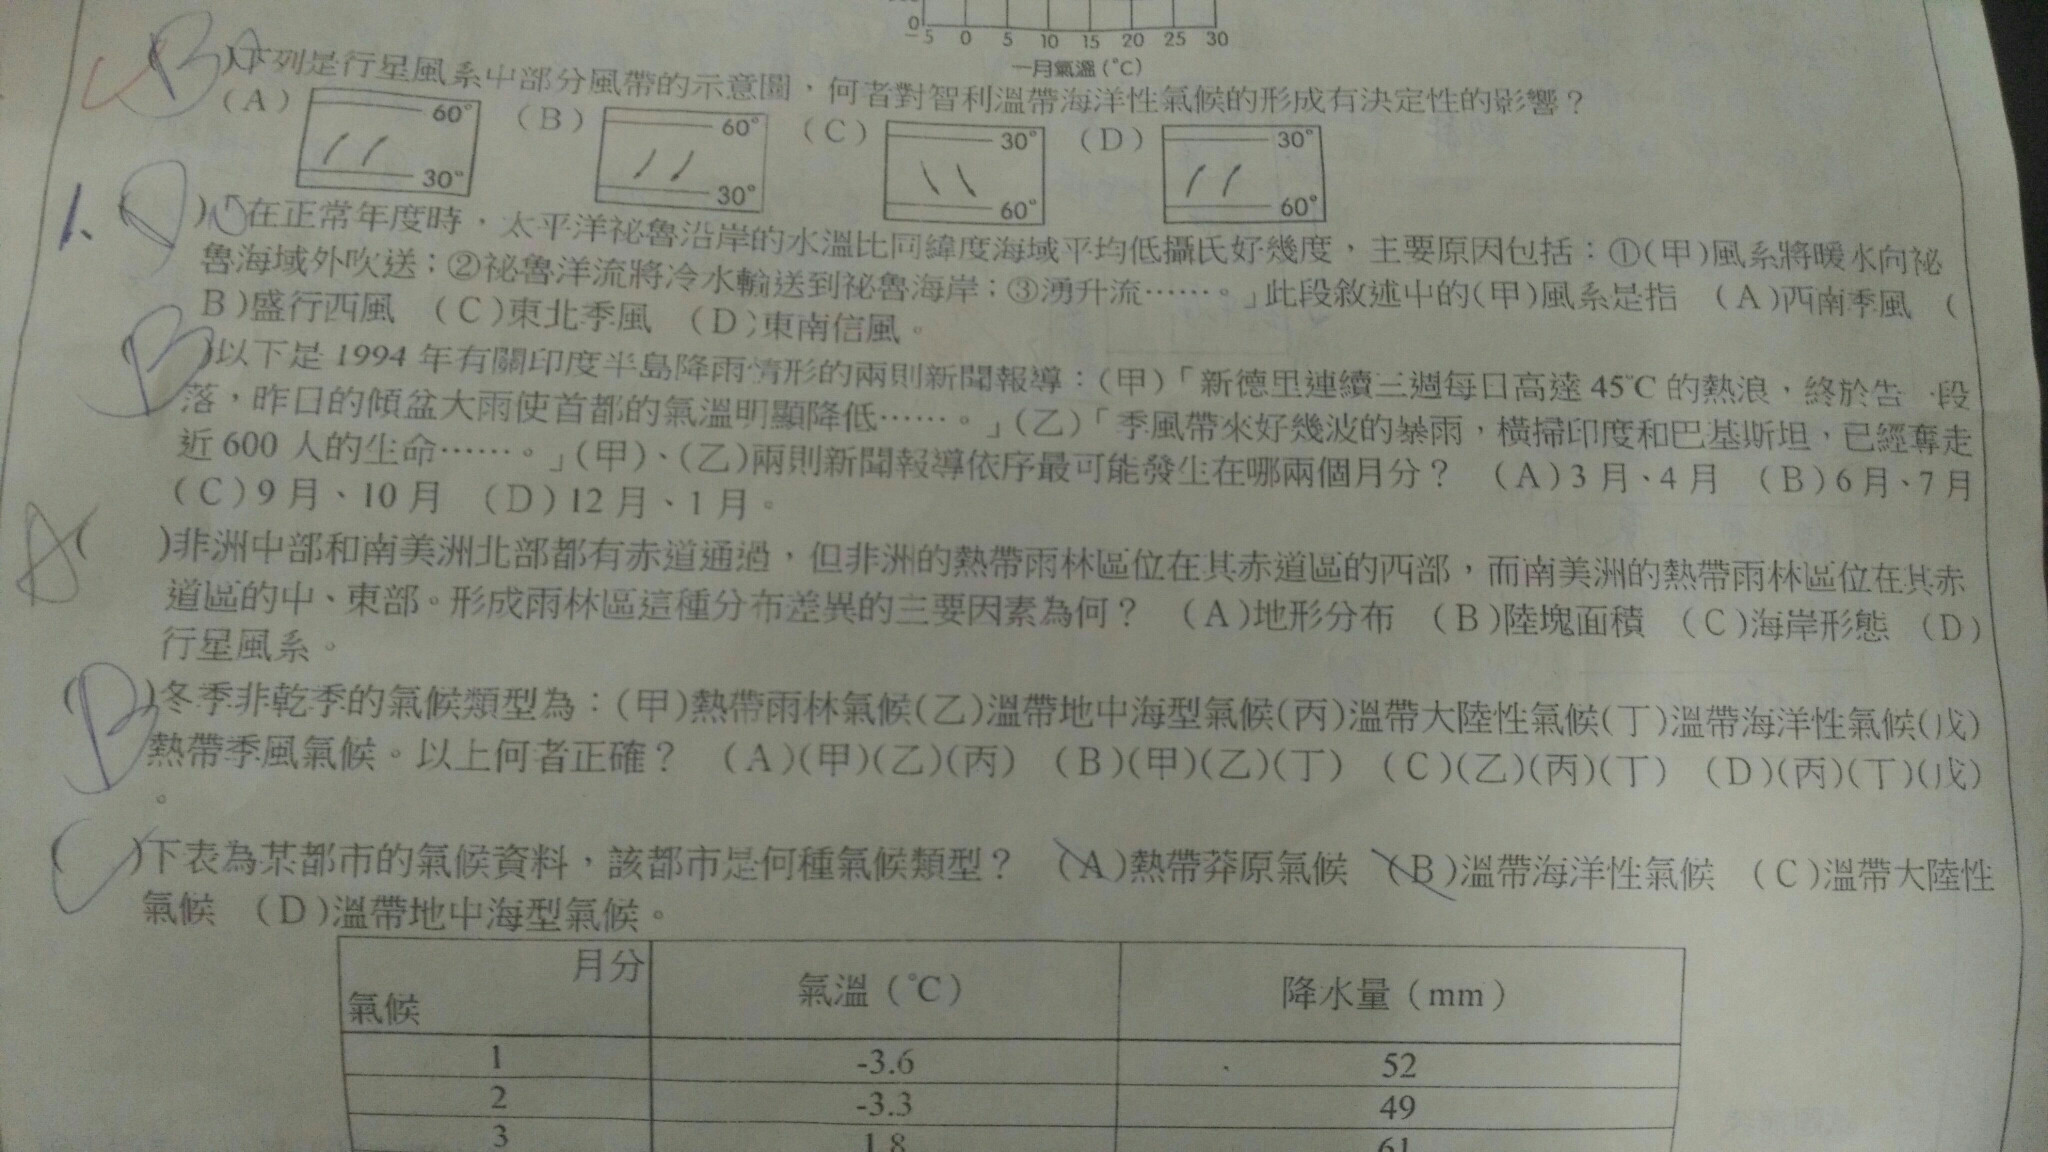 0
-5 0 5 10 15 20 25 30
一月氣溫(℃)
B )下列是行星風系中部分風帶的示意圖，何者對智利溫帶海洋性氣候的形成有決定性的影響？
(A) 60° 30° (B) 60° 30° (C) 30° 60° (D) 30° 60°
1. (D )在正常年度時，太平洋祕魯沿岸的水溫比同緯度海域平均低攝氏好幾度，主要原因包括：①(甲)風系將暖水向祕
魯海域外吹送；②祕魯洋流將冷水輸送到祕魯海岸；③湧升流……。」此段敘述中的(甲)風系是指 (A)西南季風 (
B)盛行西風 (C)東北季風 (D)東南信風。
(B )以下是 1994 年有關印度半島降雨情形的兩則新聞報導：(甲)「新德里連續三週每日高達 45℃ 的熱浪，終於告一段
落，昨日的傾盆大雨使首都的氣溫明顯降低……。」(乙)「季風帶來好幾波的暴雨，橫掃印度和巴基斯坦，已經奪走
近 600 人的生命……。」(甲)、(乙)兩則新聞報導依序最可能發生在哪兩個月分？ (A)3 月、4 月 (B)6 月、7 月
(C)9 月、10 月 (D)12 月、1 月。
A( )非洲中部和南美洲北部都有赤道通過，但非洲的熱帶雨林區位在其赤道區的西部，而南美洲的熱帶雨林區位在其赤
道區的中、東部。形成雨林區這種分布差異的主要因素為何？ (A)地形分布 (B)陸塊面積 (C)海岸形態 (D)
行星風系。
(B )冬季非乾季的氣候類型為：(甲)熱帶雨林氣候(乙)溫帶地中海型氣候(丙)溫帶大陸性氣候(丁)溫帶海洋性氣候(戊)
熱帶季風氣候。以上何者正確？ (A)(甲)(乙)(丙) (B)(甲)(乙)(丁) (C)(乙)(丙)(丁) (D)(丙)(丁)(戊)
。
(C )下表為某都市的氣候資料，該都市是何種氣候類型？ (A)熱帶莽原氣候 (B)溫帶海洋性氣候 (C)溫帶大陸性
氣候 (D)溫帶地中海型氣候。
月分 氣候 氣溫(℃) 降水量(mm)
1 -3.6 52
2 -3.3 49
3 1.8 61